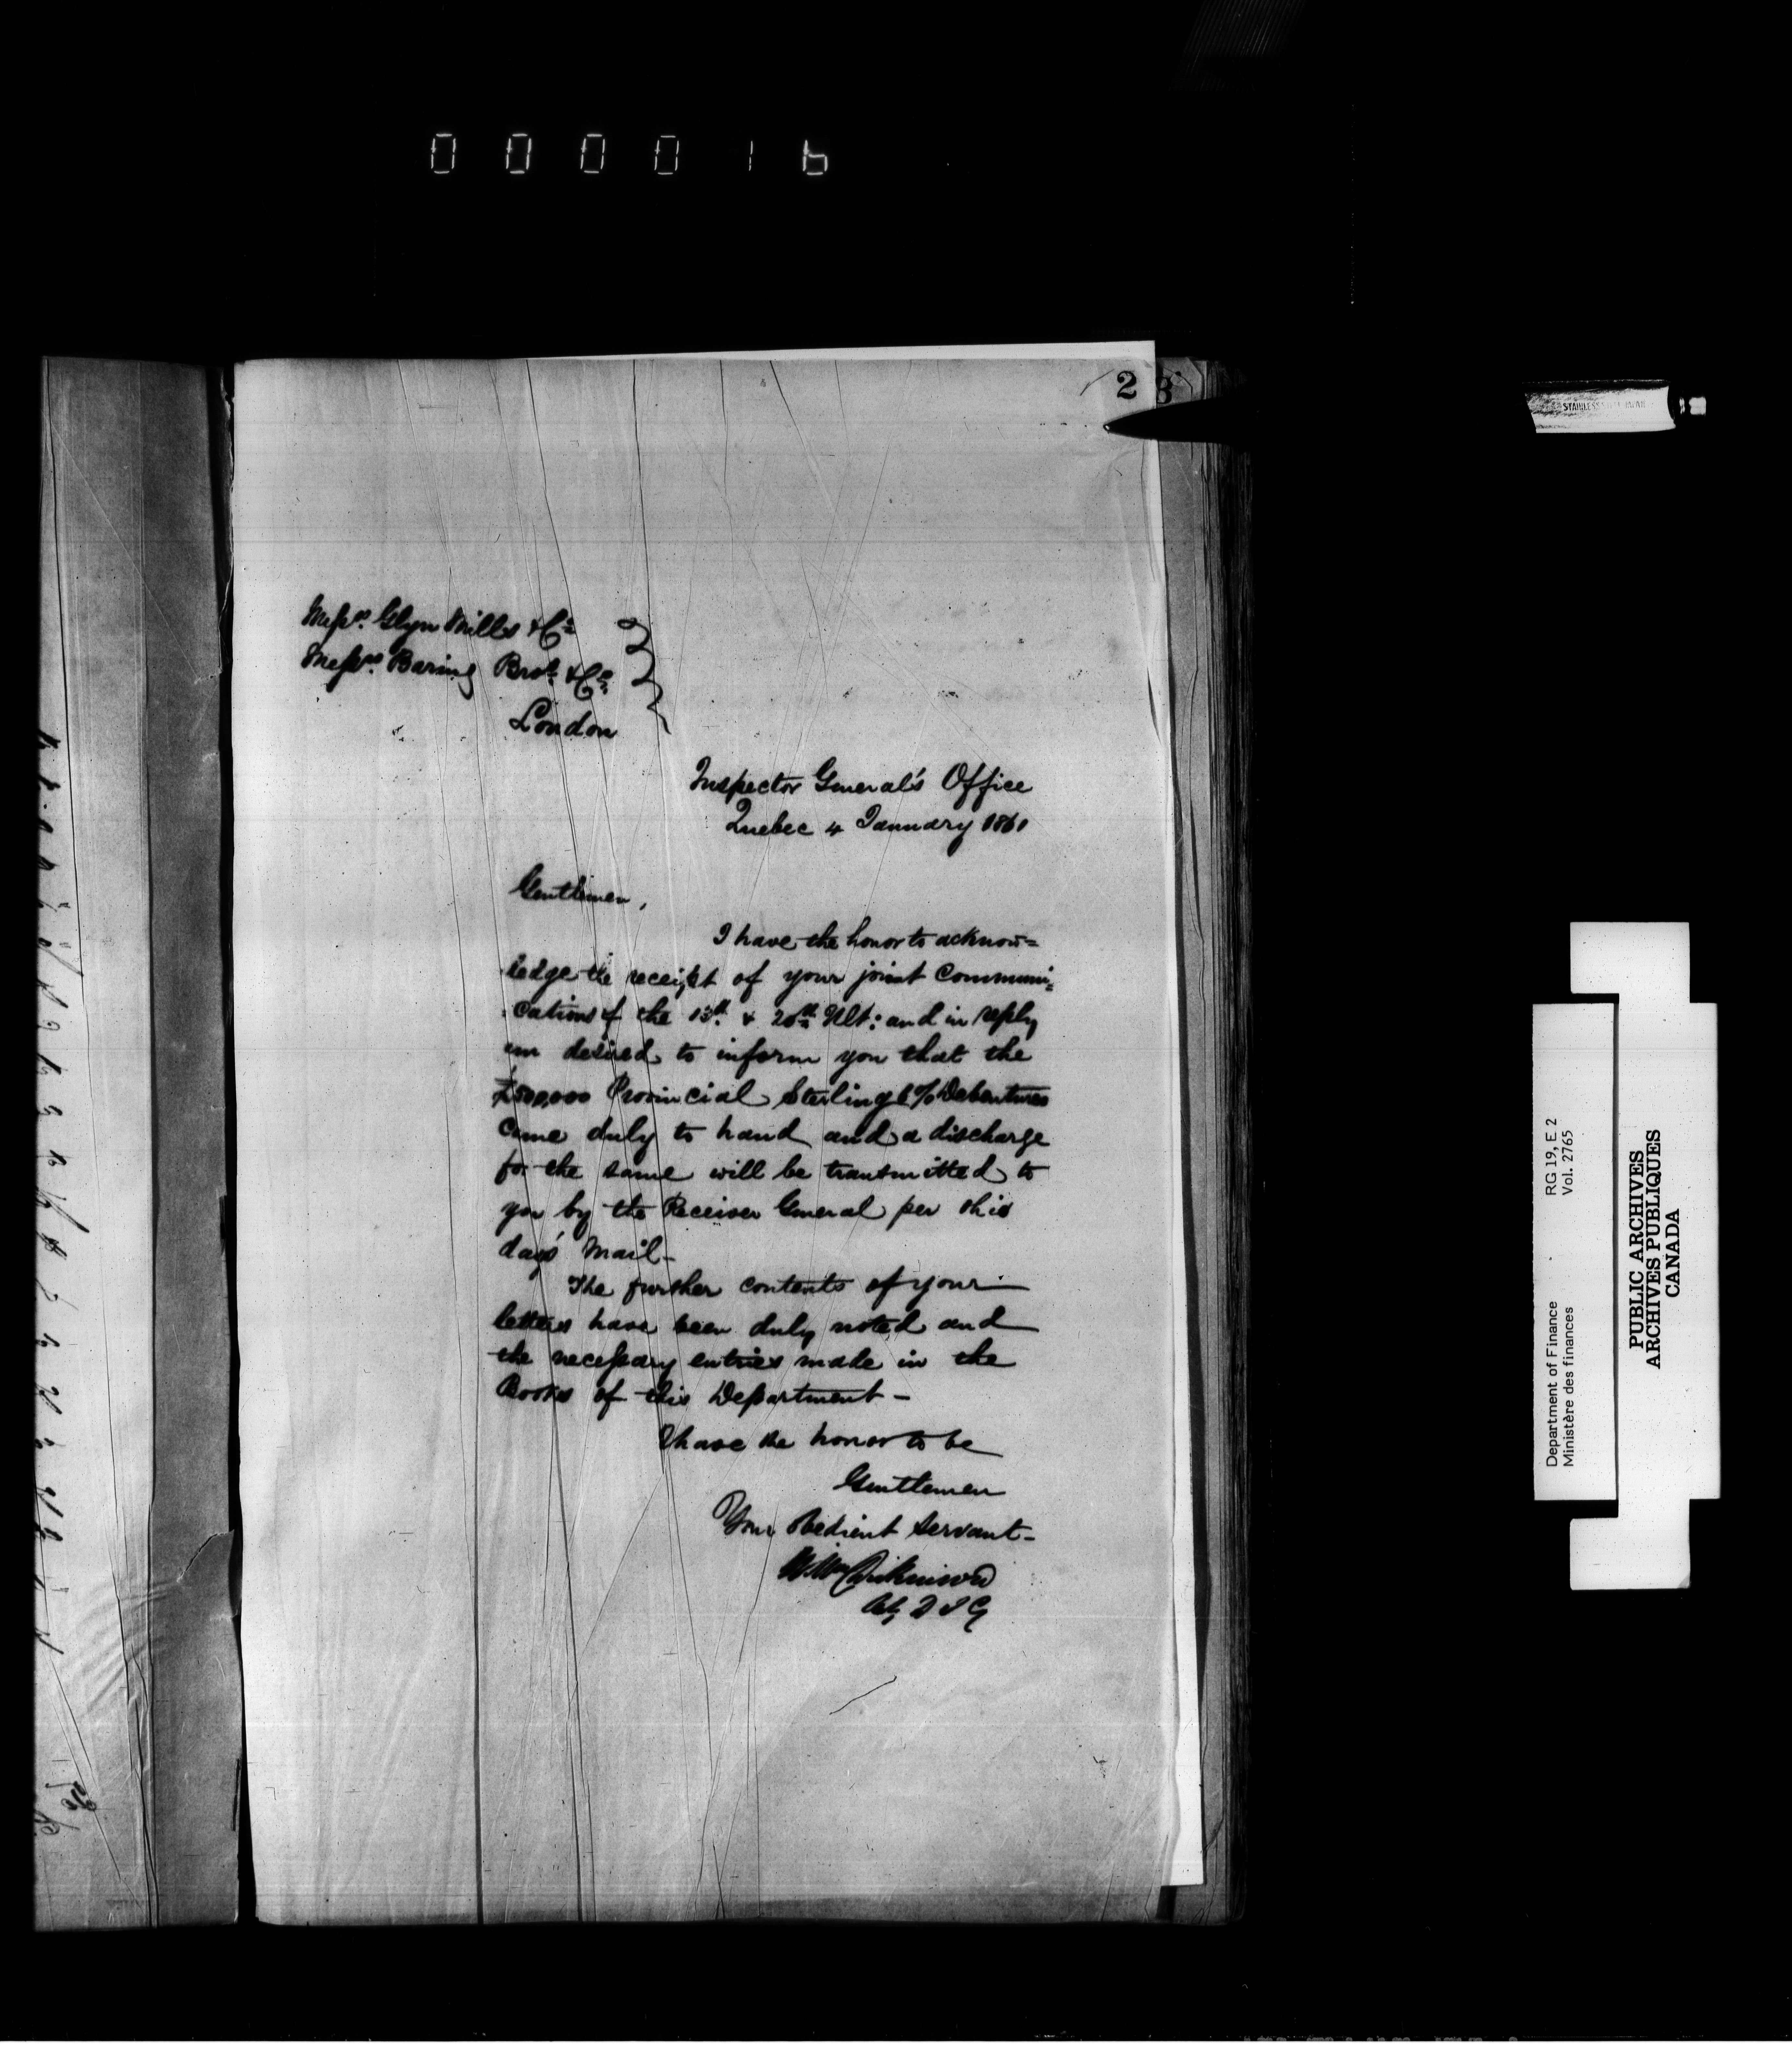 000016
2
8
Messrs. Glyn Mills & Co.
Messrs. Baring Bros. & Co.
London
Inspector General's Office
Quebec 4 January 1861
Gentlemen,
I have the honor to acknow=
ledge the receipt of your joint Communi=
cations of the 13th. & 20th Ult: and in reply
am desired to inform you that the
£500,000 Provincial Sterling 6 % Debentures
came duly to hand and a discharge
for the same will be transmitted to
you by the Receiver General per this
day's Mail—
The further contents of your
letters have been duly noted and
the necessary entries made in the
Books of this Department—
I have the honor to be
Gentlemen
Your Obedient Servant—
Wm Dickinson
Actg D I G
STAINLESS JAPAN
Department of Finance RG 19, E 2
Ministère des finances Vol. 2765
PUBLIC ARCHIVES
ARCHIVES PUBLIQUES
CANADA